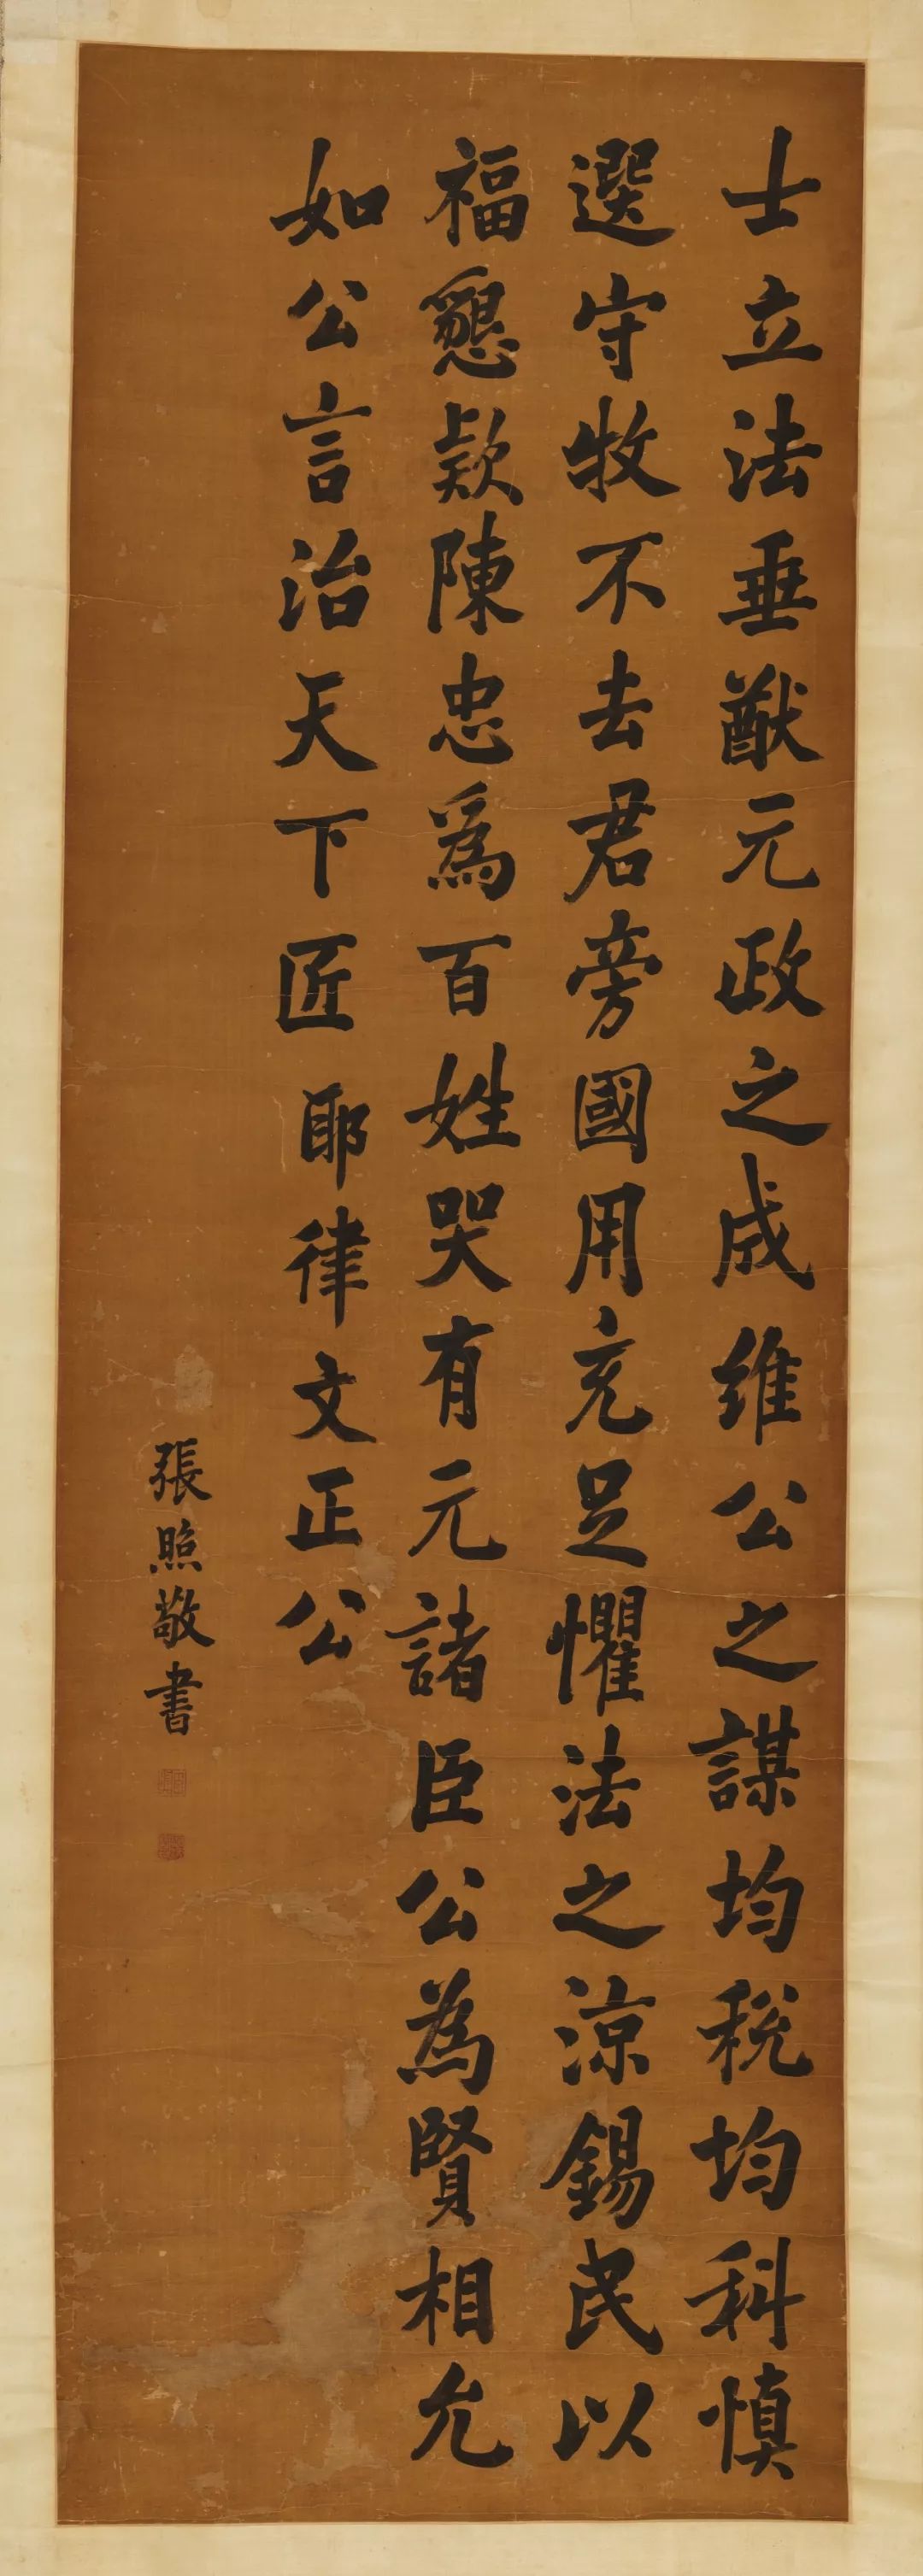 士立法垂猷元政之成維公之謀均稅均科慎
選守牧不去君旁國用充足懼法之涼錫民以
福懇欵陳忠為百姓哭有元諸臣公為賢相允
如公言治天下匠耶律文正公
張照敬書